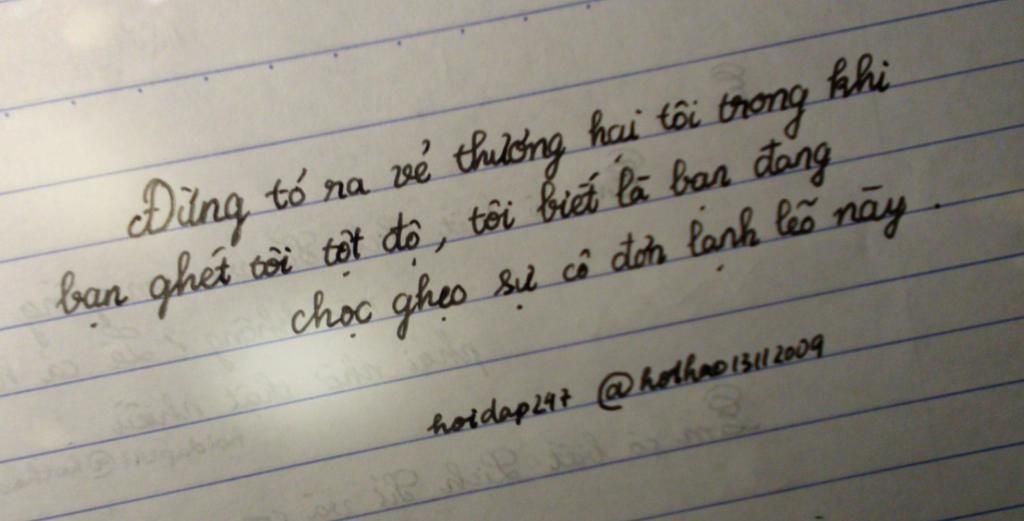 Đừng tỏ ra vẻ thương hại tôi trong khi
bạn ghét tôi tột độ, tôi biết là bạn đang
chọc ghẹo sự cô đơn lạnh lẽo này.
hoidap247 @hothao13112009